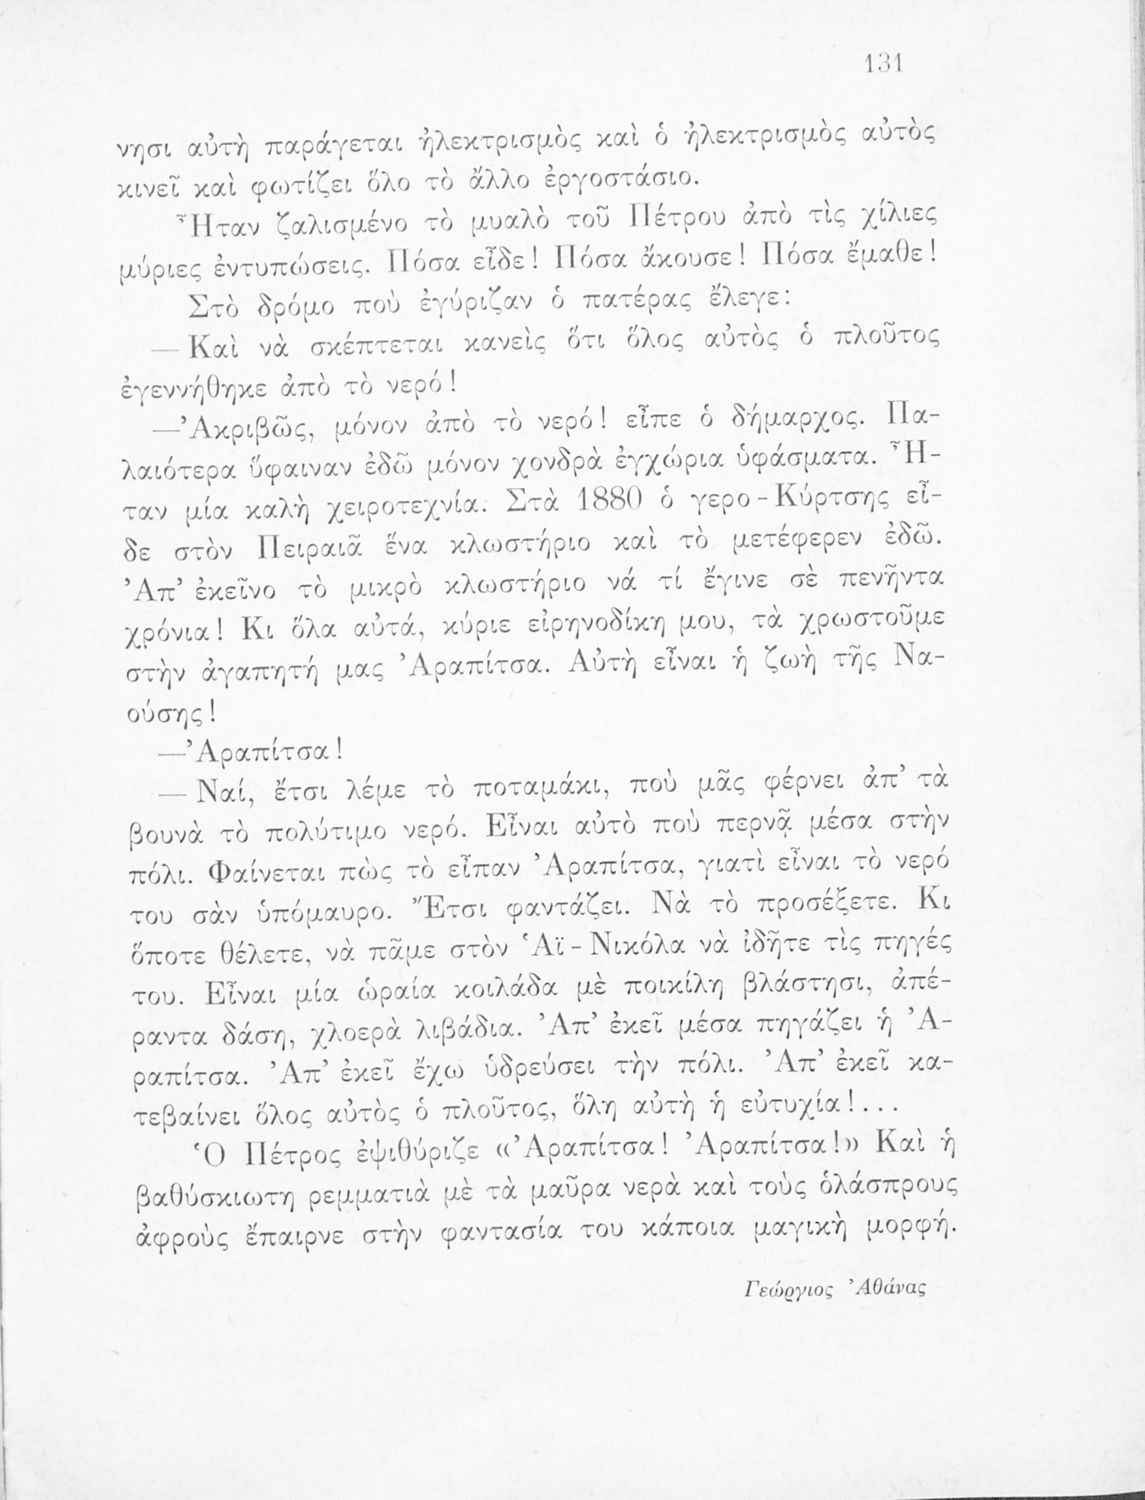 131
νησι αὐτὴ παράγεται ἠλεκτρισμὸς καὶ ὁ ἠλεκτρισμὸς αὐτὸς
κινεῖ καὶ φωτίζει ὅλο τὸ ἄλλο ἐργοστάσιο.
Ἦταν ζαλισμένο τὸ μυαλὸ τοῦ Πέτρου ἀπὸ τὶς χίλιες
μύριες ἐντυπώσεις. Πόσα εἶδε! Πόσα ἄκουσε! Πόσα ἔμαθε!
Στὸ δρόμο ποὺ ἐγύριζαν ὁ πατέρας ἔλεγε:
— Καὶ νὰ σκέπτεται κανεὶς ὅτι ὅλος αὐτὸς ὁ πλοῦτος
ἐγεννήθηκε ἀπὸ τὸ νερό!
—Ἀκριβῶς, μόνον ἀπὸ τὸ νερό! εἶπε ὁ δήμαρχος. Πα-
λαιότερα ὕφαιναν ἐδῶ μόνον χονδρὰ ἐγχώρια ὑφάσματα. Ἦ-
ταν μία καλὴ χειροτεχνία. Στὰ 1880 ὁ γερο-Κύρτσης εἶ-
δε στὸν Πειραιᾶ ἕνα κλωστήριο καὶ τὸ μετέφερεν ἐδῶ.
Ἀπ’ ἐκεῖνο τὸ μικρὸ κλωστήριο νά τί ἔγινε σὲ πενῆντα
χρόνια! Κι ὅλα αὐτά, κύριε εἰρηνοδίκη μου, τὰ χρωστοῦμε
στὴν ἀγαπητή μας Ἀραπίτσα. Αὐτὴ εἶναι ἡ ζωὴ τῆς Να-
ούσης!
—Ἀραπίτσα!
— Ναί, ἔτσι λέμε τὸ ποταμάκι, ποὺ μᾶς φέρνει ἀπ’ τὰ
βουνὰ τὸ πολύτιμο νερό. Εἶναι αὐτὸ ποὺ περνᾷ μέσα στὴν
πόλι. Φαίνεται πὼς τὸ εἶπαν Ἀραπίτσα, γιατὶ εἶναι τὸ νερό
του σὰν ὑπόμαυρο. Ἔτσι φαντάζει. Νὰ τὸ προσέξετε. Κι
ὅποτε θέλετε, νὰ πᾶμε στὸν Ἁϊ-Νικόλα νὰ ἰδῆτε τὶς πηγές
του. Εἶναι μία ὡραία κοιλάδα μὲ ποικίλη βλάστησι, ἀπέ-
ραντα δάση, χλοερὰ λιβάδια. Ἀπ’ ἐκεῖ μέσα πηγάζει ἡ Ἀ-
ραπίτσα. Ἀπ’ ἐκεῖ ἔχω ὑδρεύσει τὴν πόλι. Ἀπ’ ἐκεῖ κα-
τεβαίνει ὅλος αὐτὸς ὁ πλοῦτος, ὅλη αὐτὴ ἡ εὐτυχία!...
Ὁ Πέτρος ἐψιθύριζε «Ἀραπίτσα! Ἀραπίτσα!» Καὶ ἡ
βαθύσκιωτη ρεμματιὰ μὲ τὰ μαῦρα νερὰ καὶ τοὺς ὁλάσπρους
ἀφροὺς ἔπαιρνε στὴν φαντασία του κάποια μαγικὴ μορφή.
Γεώργιος Ἀθάνας